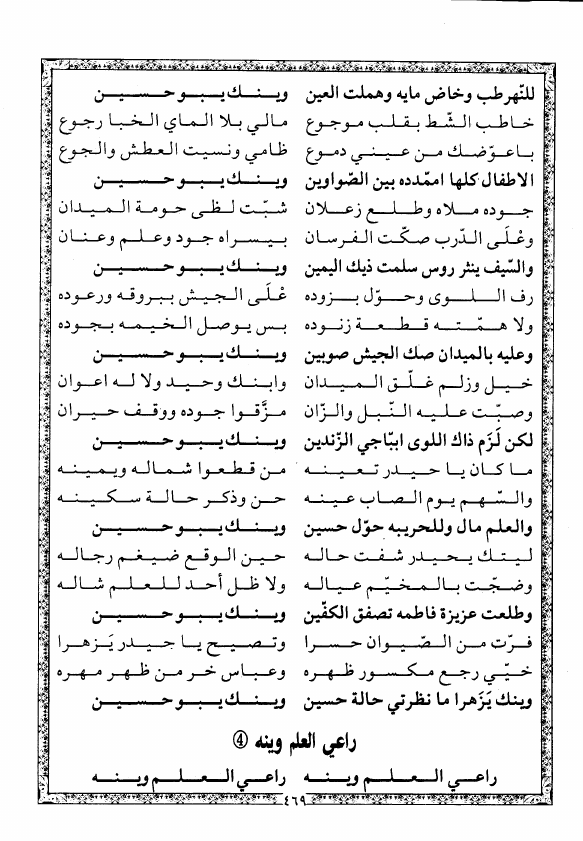 للنّهر طب وخاض مايه وهملت العين وينك يبو حسين
خاطب الشّط بقلب موجوع مالي بلا الماي الخبا رجوع
باعوّضك من عيني دموع ظامي ونسيت العطش والجوع
الاطفال كلها امّدده بين الصّواوين وينك يبو حسين
جوده ملاه وطلع زعلان شبّت لظى حومة الميدان
وعْلَى الدّرب صكّت الفرسان بيسراه جود وعلم وعنان
والسّيف ينثر روس سلمت ذيك اليمين وينك يبو حسين
رف اللوى وحوّل بزوده عْلَى الجيش ببروقه ورعوده
ولا همّته قطعة زنوده بس يوصل الخيمه بجوده
وعليه بالميدان صك الجيش صوبين وينك يبو حسين
خيل وزلم غلّق الميدان وابنك وحيد ولا له اعوان
وصبّت عليه النّبل والزّان مزّقوا جوده ووقف حيران
لكن لَزم ذاك اللوى ابيّاجي الزّندين وينك يبو حسين
ما كان يا حيدر تعينه من قطعوا شماله ويمينه
والسّهم يوم الصاب عينه حن وذكر حالة سكينه
والعلم مال وللحريبه حوّل حسين وينك يبو حسين
ليتك يحيدر شفت حاله حين الوقع ضيغم رجاله
وضجّت بالمخيّم عياله ولا ظل أحد للعلم شاله
وطلعت عزيزة فاطمه تصفق الكفّين وينك يبو حسين
فرّت من الصّيوان حسرا وتصيح يا حيدر يَزهرا
خيّي رجع مكسور ظهره وعباس خر من ظهر مهره
وينك يَزهرا ما نظرتي حالة حسين وينك يبو حسين
راعي العلم وينه ④
راعي العلم وينه راعي العلم وينه
٤٦٩